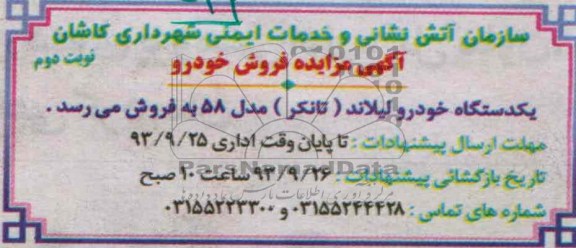 سازمان آتش نشانی و خدمات ایمنی شهرداری کاشان
آگهی مزایده فروش خودرو
نوبت دوم
یکدستگاه خودرو لیلاند ( تانکر ) مدل ۵۸ به فروش می رسد .
مهلت ارسال پیشنهادات : تا پایان وقت اداری ۹۳/۹/۲۵
تاریخ بازگشائی پیشنهادات : ۹۳/۹/۲۶ ساعت ۱۰ صبح
ParsNamadData
شماره های تماس : ۰۳۱۵۵۲۴۴۴۲۸ و ۰۳۱۵۵۲۲۳۳۰۰